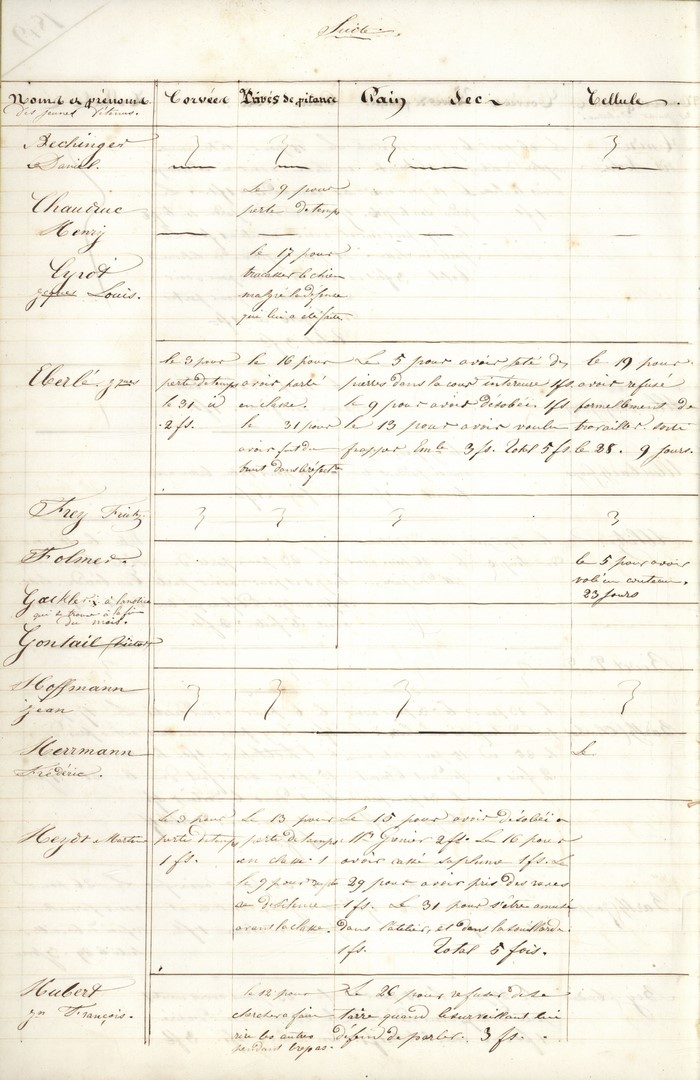 1849
Suite.
Noms et prénoms
des jeunes détenus.
Corvées
Privés de pitance
Pain Sec
Cellule.
Bechinger
Daniel.
Chaudruc
Henry
le 9 pour
perte de temps
Cyrot
Louis.
le 17 pour
tracasser le chien
malgré la défense
qui lui a été faite
Eberlé. Jques
le 3 pour
perte de temps
le 31 id
2 fs.
le 16 pour
avoir parlé
en classe.
le 31 pour
avoir fait du
bruit dans le réfect.
Le 5 pour avoir jeté des
pierres dans la cour intérieure 1 fs.
le 9 pour avoir désobéi. 1 fs
le 13 pour avoir voulu
frapper 3 fs. Total 5 fs.
le 19 pour
avoir refusé
formellement de
travailler, sorti
le 28. 9 jours.
Frey
Folmer.
le 5 pour avoir
volé un couteau.
23 jours
Gackler
qui se trouve à la fin
du mois.
Gontail
Hoffmann
Jean
Herrmann
Frédéric.
Le
Heydt Martin
Le 3 pour
perte de temps
1 fs.
Le 13 pour
perte de temps
en classe. 1
le 9 pour
de désilence
avant la classe.
Le 15 pour avoir désobéi a
Mr Grenier 2 fs. Le 16 pour
avoir cassé sa plume 1 fs. Le
29 pour avoir pris des raves
1 fs. Le 31 pour s'être amusé
dans l'atelier, et dans la
1 fs. Total 5 fois.
Hubert
François.
le 12 pour
chercher a faire
rire les autres
pendant le repas.
Le 26 pour refuser de se
taire quand le surveillant lui
défend de parler. 3 fs.